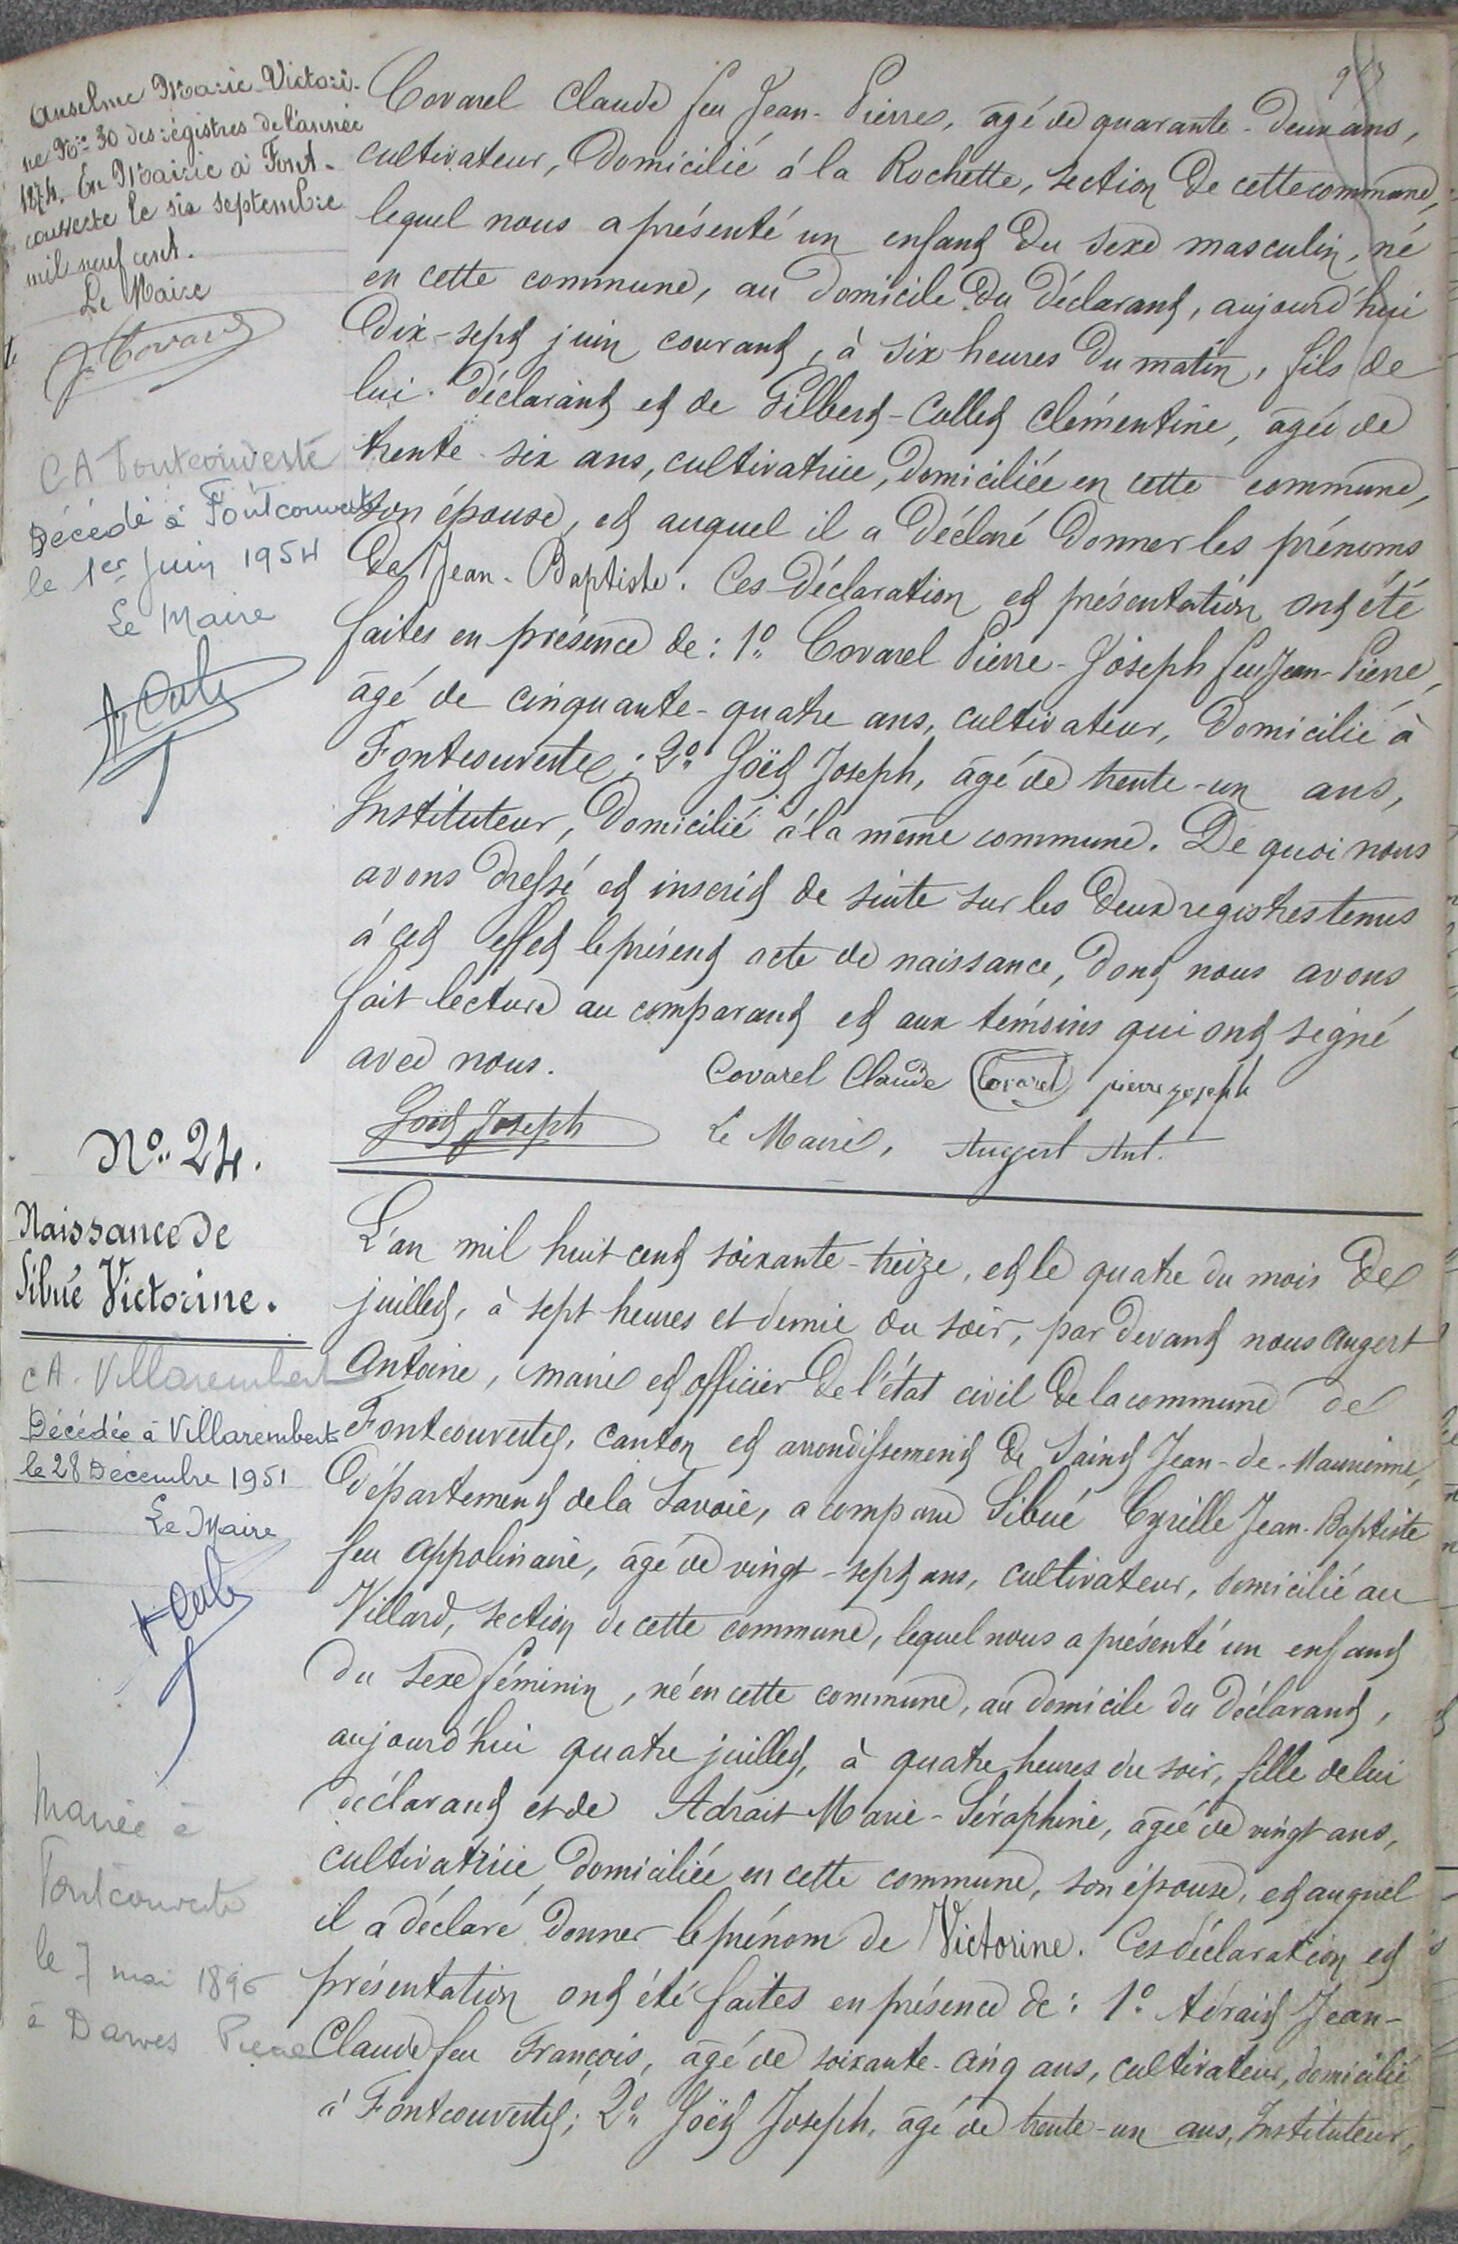 Anselme Marie Victori-
ne No 30 des régistres de l'année
1874. En Mairie à Font-
couverte le six septembre
mil neuf cent.
Le Maire
CA Fontcouverte
Décédé à Fontcouverte
le 1er Juin 1954
Le Maire
Covarel Claude feu Jean-Pierre, âgé de quarante-deux ans,
cultivateur, domicilié à la Rochette, section de cette commune,
lequel nous a présenté un enfant du sexe masculin, né
en cette commune, au domicile du déclarant, aujourd'hui
dix-sept juin courant, à six heures du matin, fils de
lui déclarant et de Gilbert-Collet Clémentine, âgée de
trente-six ans, cultivatrice, domiciliée en cette commune,
son épouse, et auquel il a déclaré donner les prénoms
de Jean-Baptiste. Ces déclaration et présentation ont été
faites en présence de: 1o Covarel Pierre-Joseph feu Jean-Pierre,
âgé de cinquante-quatre ans, cultivateur, domicilié à
Fontcouverte; 2o Goët Joseph, âgé de trente-un ans,
Instituteur, domicilié à la même commune. De quoi nous
avons dressé et inscrit de suite sur les deux registres tenus
à cet effet le présent acte de naissance, dont nous avons
fait lecture au comparant et aux témoins qui ont signé
avec nous.
Covarel Claude Covarel pierre joseph
Goët Joseph Le Maire, Augert Ant.
No 24.
Naissance de
Sibué Victorine.
CA. Villarembert
Décédée à Villarembert
le 28 Décembre 1951
Le Maire
Mariée à
Fontcouverte
le 7 mai 1896
à Darves Pierre
L'an mil huit cent soixante-treize, et le quatre du mois de
juillet, à sept heures et demie du soir, par devant nous Augert
Antoine, maire et officier de l'état civil de la commune de
Fontcouverte, canton et arrondissement de Saint Jean-de-Maurienne,
département de la Savoie, a comparu Sibué Cyrille Jean-Baptiste
feu Appolinaire, âgé de vingt-sept ans, cultivateur, domicilié au
Villard, section de cette commune, lequel nous a présenté un enfant
du sexe féminin, né en cette commune, au domicile du déclarant,
aujourd'hui quatre juillet, à quatre heures du soir, fille de lui
déclarant et de Adrait Marie-Séraphine, âgée de vingt ans,
cultivatrice, domiciliée en cette commune, son épouse, et auquel
il a déclaré donner le prénom de Victorine. Ces déclaration et
présentation ont été faites en présence de: 1o Adrait Jean-
Claude feu François, âgé de soixante-cinq ans, cultivateur, domicilié
à Fontcouverte; 2o Goët Joseph, âgé de trente-un ans, Instituteur,